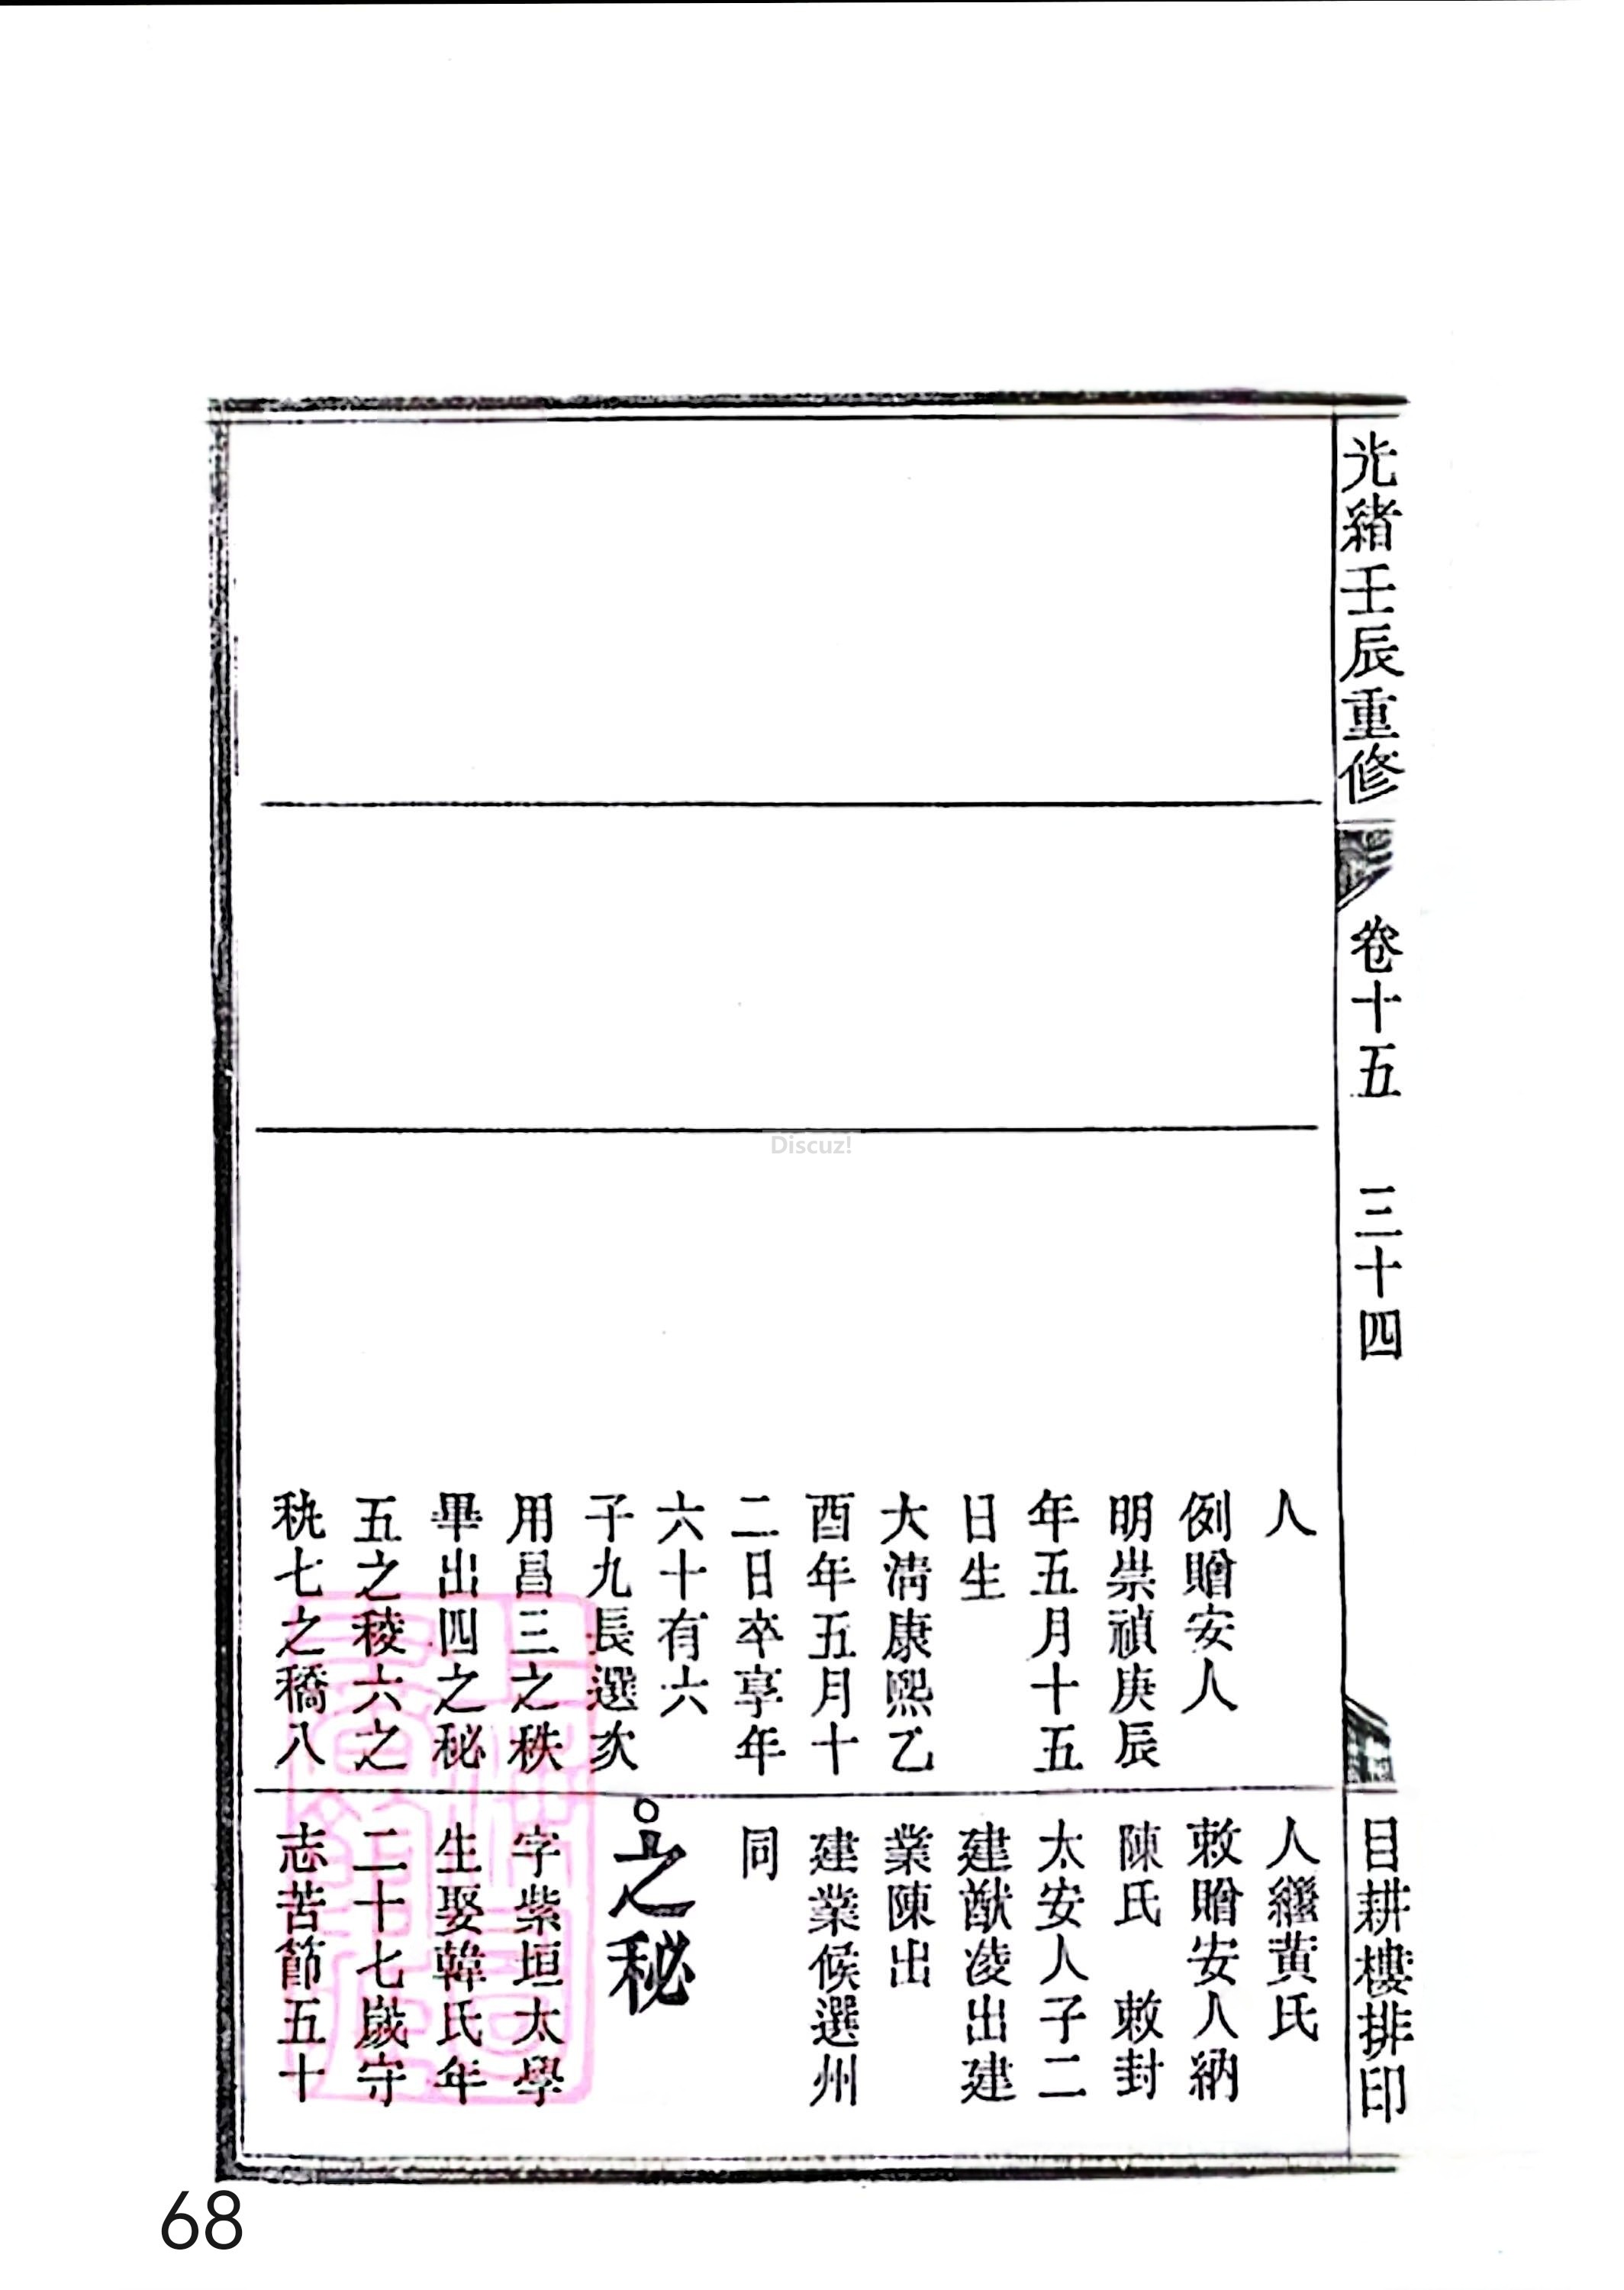 光緒壬辰重修
卷十五
三十四
目耕樓排印
人
例贈安人
明崇禎庚辰
年五月十五
日生
大淸康熙乙
酉年五月十
二日卒享年
六十有六
子九長選次
用昌三之秩
畢出四之秘
五之稜六之
秇七之穚八
人繼黃氏
敕贈安人納
陳氏 敕封
太安人子二
建猷凌出建
業陳出
建業候選州
同
之秘
字紫垣太學
生娶韓氏年
二十七歲守
志苦節五十
Discuz!
68